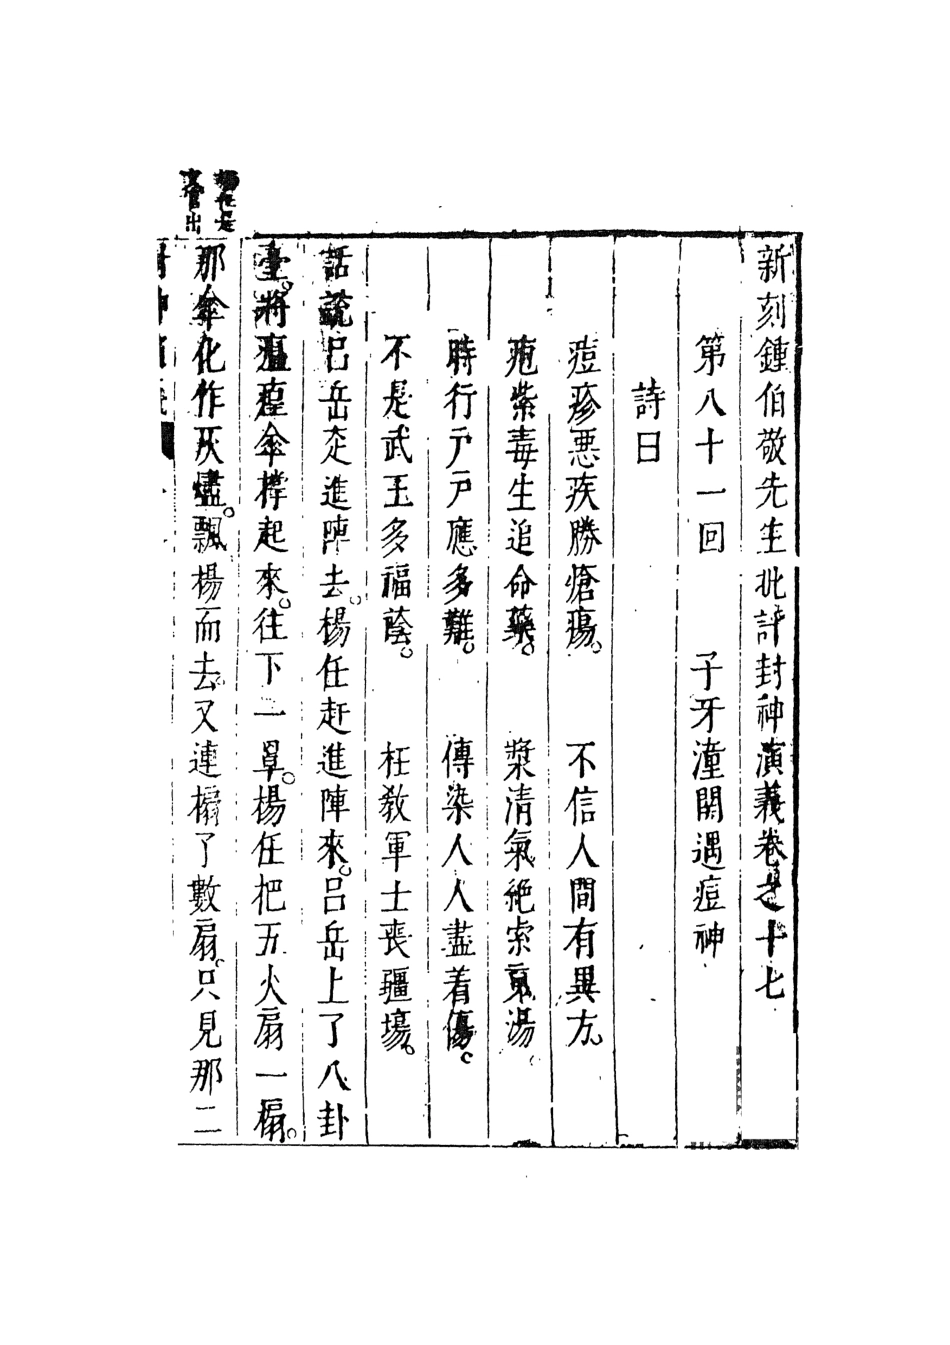 新刻鍾伯敬先生批評封神演義卷之十七
第八十一回 子牙潼關遇痘神
詩曰
痘疹惡疾勝瘡瘍。 不信人間有異方。
疱紫毒生追命藥。 漿清氣絶索魂湯。
時行戸戸應多難。 傳染人人盡着傷。
不是武王多福蔭。 枉教軍士喪疆場。
話說呂岳走進陣去。楊任赶進陣來。呂岳上了八卦
臺。將瘟㾮傘撐起來。往下一罩。楊任把五火扇一搧。
那傘化作灰燼。飄揚而去。又連搧了數扇。只見那二